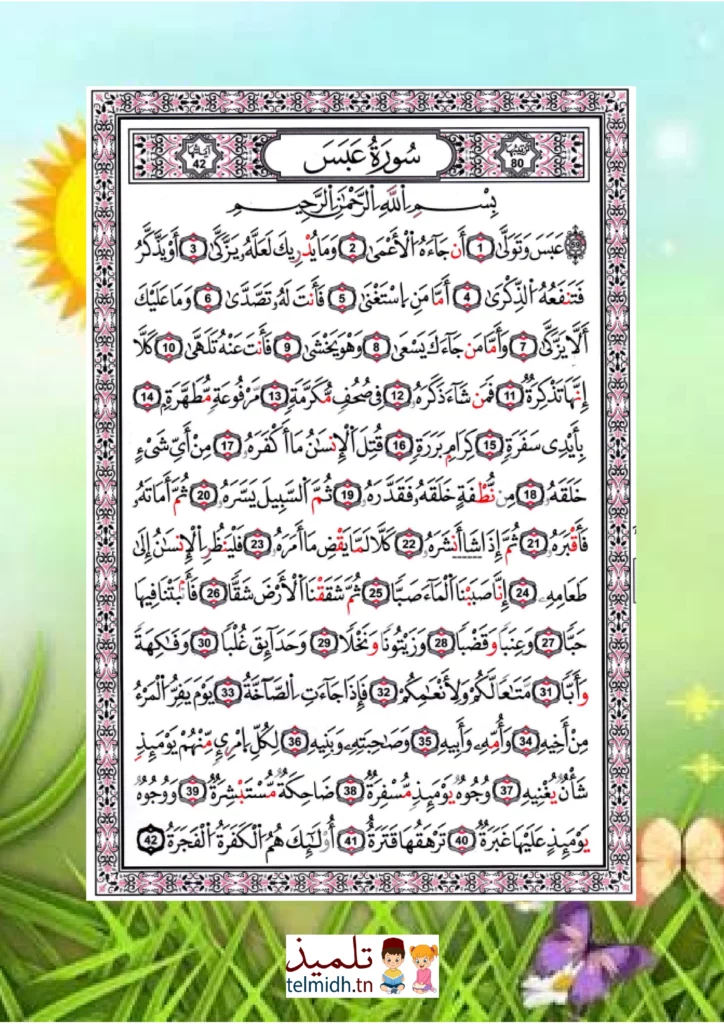 آياتها 42
سُورَةُ عَبَسَ
ترتيبها 80
بِسْمِ اِللَّهِ اِلرَّحْمَٰنِ اِلرَّحِيمِ
عَبَسَ وَتَوَلَّىٰ 1 أَن جَآءَهُ اُلْأَعْمَىٰ 2 وَمَا يُدْرِيكَ لَعَلَّهُۥ يَزَّكَّىٰ 3 أَوْ يَذَّكَّرُ
فَتَنفَعُهُ اُلذِّكْرَىٰ 4 أَمَّا مَنِ اِسْتَغْنَىٰ 5 فَأَنتَ لَهُۥ تَصَّدَّىٰ 6 وَمَا عَلَيْكَ
أَلَّا يَزَّكَّىٰ 7 وَأَمَّا مَن جَآءَكَ يَسْعَىٰ 8 وَهْوَ يَخْشَىٰ 9 فَأَنتَ عَنْهُ تَلَهَّىٰ 10 كَلَّا
إِنَّهَا تَذْكِرَةٌ 11 فَمَن شَآءَ ذَكَرَهُۥ 12 فِى صُحُفٍ مُّكَرَّمَةٍ 13 مَّرْفُوعَةٍ مُّطَهَّرَةٍ 14
بِأَيْدِى سَفَرَةٍ 15 كِرَامٍ بَرَرَةٍ 16 قُتِلَ اَلْإِنسَٰنُ مَا أَكْفَرَهُۥ 17 مِنْ أَيِّ شَىْءٍ
خَلَقَهُۥ 18 مِن نُّطْفَةٍ خَلَقَهُۥ فَقَدَّرَهُۥ 19 ثُمَّ اَلسَّبِيلَ يَسَّرَهُۥ 20 ثُمَّ أَمَاتَهُۥ
فَأَقْبَرَهُۥ 21 ثُمَّ إِذَا شَا أَنشَرَهُۥ 22 كَلَّا لَمَّا يَقْضِ مَا أَمَرَهُۥ 23 فَلْيَنظُرِ اِلْإِنسَٰنُ إِلَىٰ
طَعَامِهِۦ 24 إِنَّا صَبَبْنَا اَلْمَآءَ صَبًّا 25 ثُمَّ شَقَقْنَا اَلْأَرْضَ شَقًّا 26 فَأَنۢبَتْنَا فِيهَا
حَبًّا 27 وَعِنَبًا وَقَضْبًا 28 وَزَيْتُونًا وَنَخْلًا 29 وَحَدَآئِقَ غُلْبًا 30 وَفَٰكِهَةً
وَأَبًّا 31 مَّتَٰعًا لَّكُمْ وَلِأَنْعَٰمِكُمْ 32 فَإِذَا جَآءَتِ اِلصَّآخَّةُ 33 يَوْمَ يَفِرُّ اُلْمَرْءُ
مِنْ أَخِيهِ 34 وَأُمِّهِۦ وَأَبِيهِ 35 وَصَٰحِبَتِهِۦ وَبَنِيهِ 36 لِكُلِّ اِمْرِئٍ مِّنْهُمْ يَوْمَئِذٍ
شَأْنٌ يُغْنِيهِ 37 وُجُوهٌ يَوْمَئِذٍ مُّسْفِرَةٌ 38 ضَاحِكَةٌ مُّسْتَبْشِرَةٌ 39 وَوُجُوهٌ
يَوْمَئِذٍ عَلَيْهَا غَبَرَةٌ 40 تَرْهَقُهَا قَتَرَةٌ 41 أُوْلَٰٓئِكَ هُمُ اُلْكَفَرَةُ اُلْفَجَرَةُ 42
تلميذ
telmidh.tn